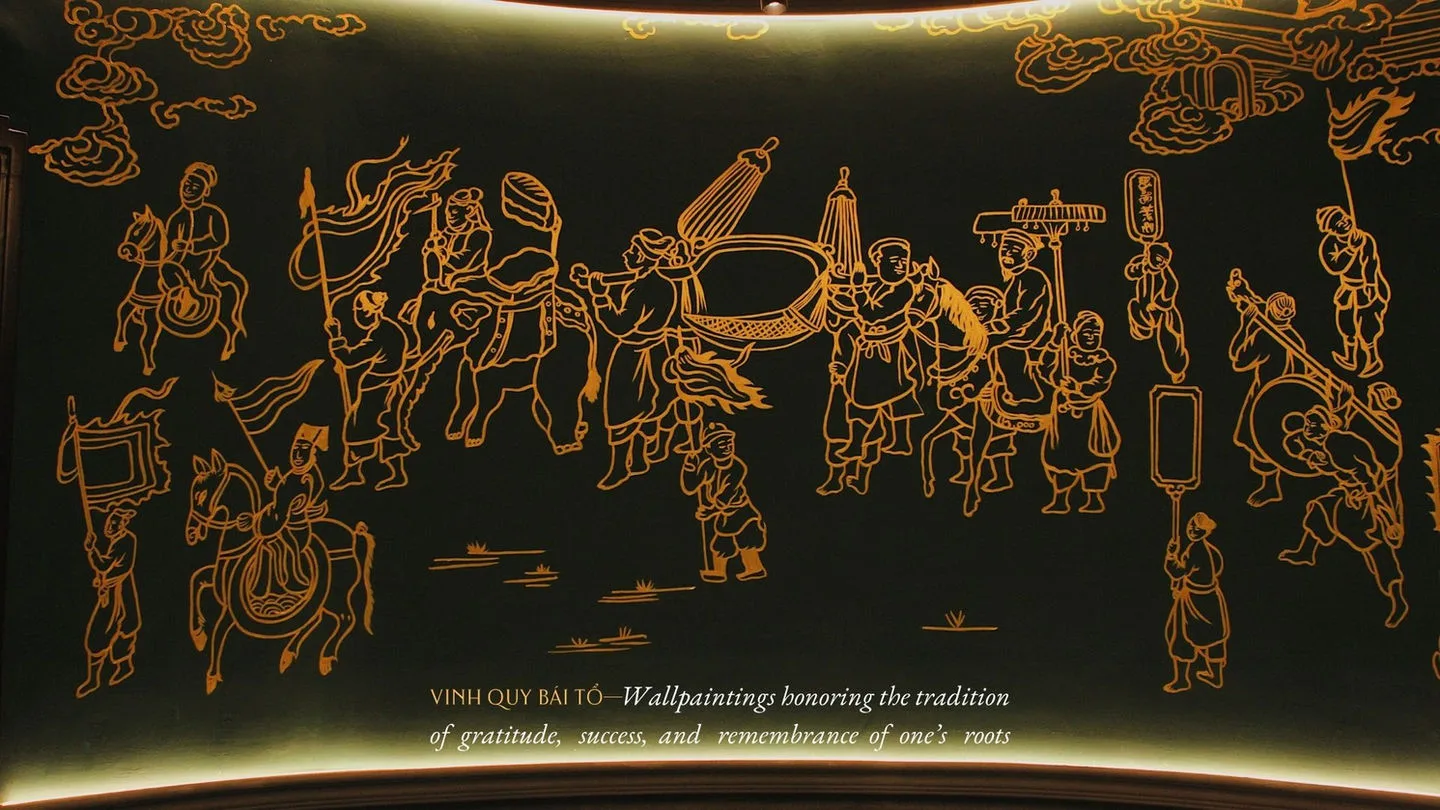 VINH QUY BÁI TỔ—Wallpaintings honoring the tradition
of gratitude, success, and remembrance of one’s roots